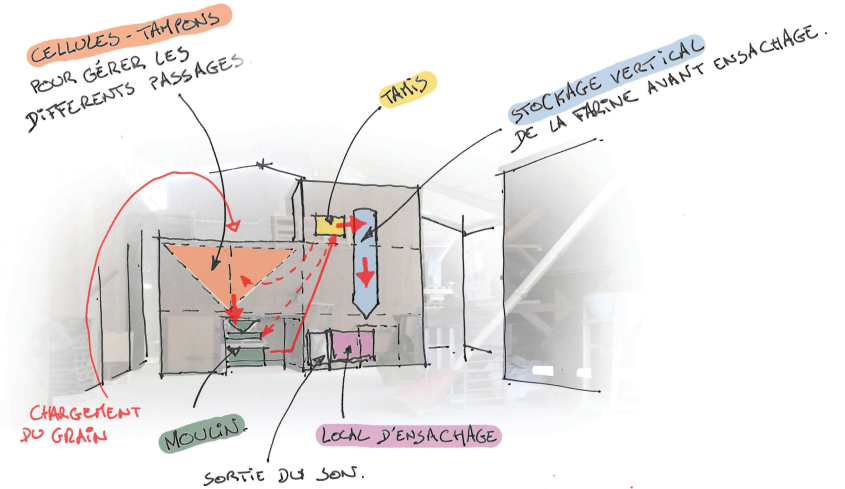 CELLULES-TAMPONS
POUR GÉRER LES
DIFFERENTS PASSAGES.
TAMIS
STOCKAGE VERTICAL
DE LA FARINE AVANT ENSACHAGE.
CHARGEMENT
DU GRAIN
MOULIN.
LOCAL D'ENSACHAGE
SORTIE DU SON.